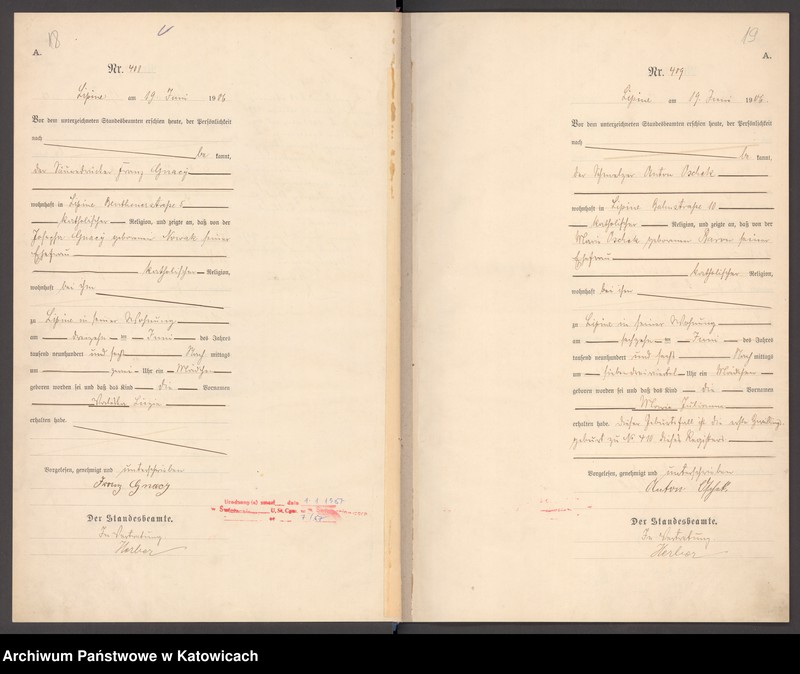 18
A.
Nr. 411
Lipine am 19 Juni 1906
Vor dem unterzeichneten Standesbeamten erschien heute, der Persönlichkeit
nach
be kannt,
der Franz Gnacy
wohnhaft in Lipine Beuthenerstraße
katholischer Religion, und zeigte an, daß von der
Josepha Gnacy geborenen Nowak seiner
Ehefrau
katholischer Religion,
wohnhaft bei ihm
zu Lipine in seiner Wohnung
am ten Juni des Jahres
tausend neunhundert und sechs Nach mittags
um Uhr ein Mädchen
geboren worden sei und daß das Kind die Vornamen
Valeska Luzie
erhalten habe.
Vorgelesen, genehmigt und unterschrieben
Franz Gnacy
Der Standesbeamte.
In Vertretung
19
A.
Nr. 409
Lipine am 19 Juni 1906.
Vor dem unterzeichneten Standesbeamten erschien heute, der Persönlichkeit
nach
be kannt,
der Schmelzer Anton
wohnhaft in Lipine Bahnstraße
katholischer Religion, und zeigte an, daß von der
Marie geborenen seiner
Ehefrau
katholischer Religion,
wohnhaft bei ihm
zu Lipine in seiner Wohnung
am sechzehn ten Juni des Jahres
tausend neunhundert und sechs Nach mittags
um Uhr ein Mädchen
geboren worden sei und daß das Kind die Vornamen
Marie Julianna
erhalten habe. Dieser Geburtsfall ist die erste Zwillings-
geburt zu No 410 dieses Registers
Vorgelesen, genehmigt und unterschrieben
Anton
Der Standesbeamte.
In Vertretung
Archiwum Państwowe w Katowicach